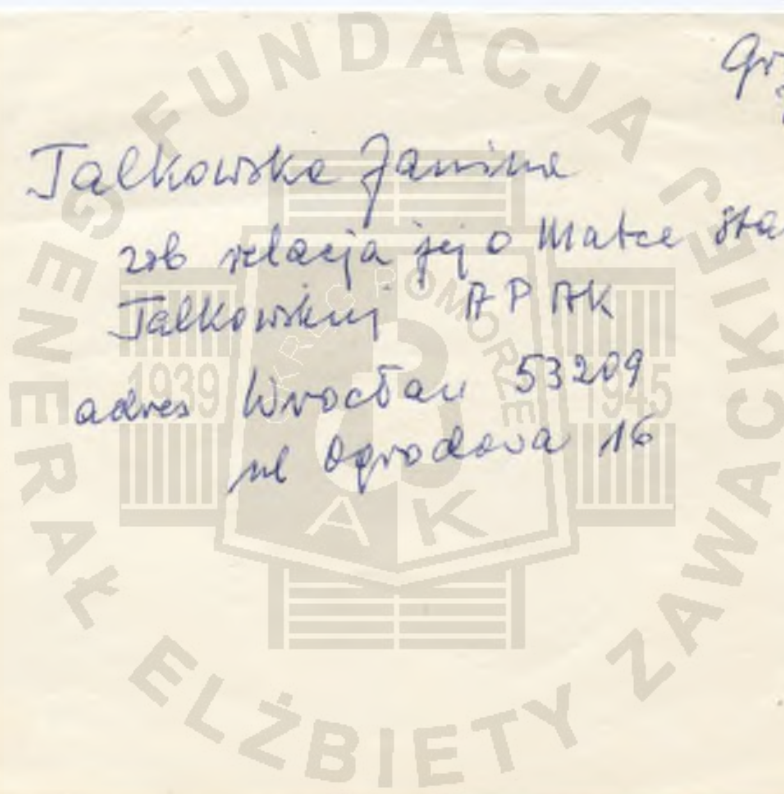 Gr
Jalkowska Janina
zob relacja jej o Matce Sta
Jalkowskiej APAK
adres Wrocław 53209
ul Ogrodowa 16
FUNDACJA GENERAŁ ELŻBIETY ZAWACKIEJ
OKRĘG POMORZE
1939 1945
AK